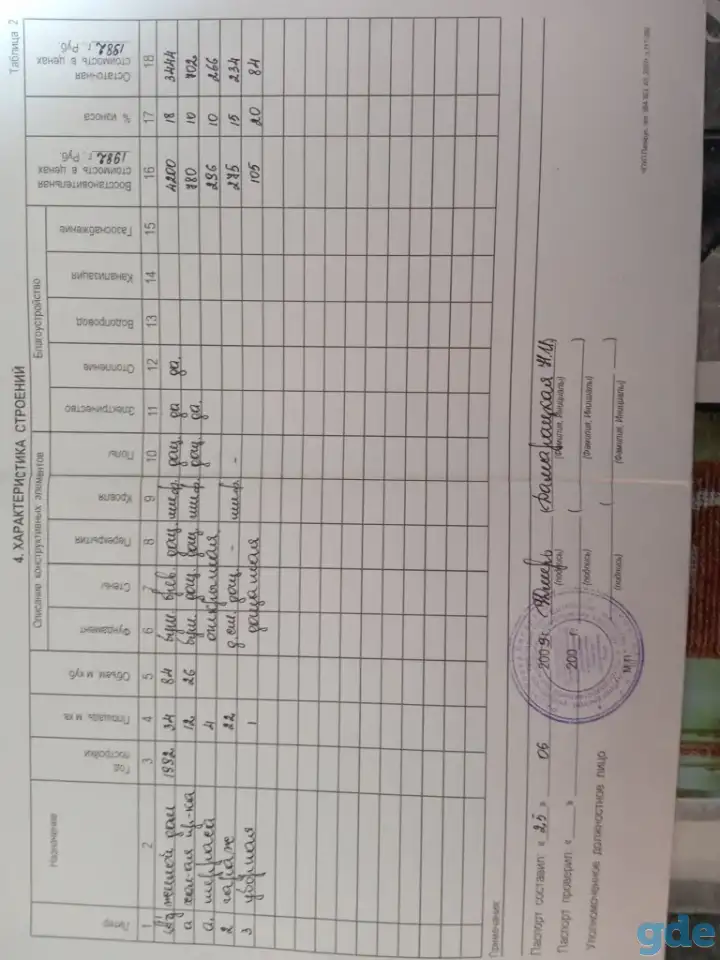 Таблица 2
4. ХАРАКТЕРИСТИКА СТРОЕНИЙ
Литер
Назначение
Год постройки
Площадь м кв.
Объем, м куб
Описание конструктивных элементов
Фундамент
Стены
Перекрытия
Кровля
Полы
Благоустройство
Электричество
Отопление
Водопровод
Канализация
Газоснабжение
Восстановительная стоимость в ценах 1982 г. Руб.
% износа
Остаточная стоимость в ценах 1982 г. Руб.
1 2 3 4 5 6 7 8 9 10 11 12 13 14 15 16 17 18
жилой дом 1992 34 84 бут. брев. дощ. шиф. дощ. да да. 4200 18 3444
а хол-ая пр-ка 12 26 бут. дощ. дощ. шиф. дощ. да. 780 10 702
а, терраса 4 открытая 296 10 266
2 гараж 22 дощ. - шиф. - 275 15 234
3 уборная 1 дощатая 105 20 84
Примечания:
Паспорт составил: « 25 » 06 2009 г. (подпись) (Фамилия, Инициалы)
Паспорт проверил: « » 200 г. (подпись) (Фамилия, Инициалы)
Уполномоченное должностное лицо (подпись) (Фамилия, Инициалы)
М.П.
gde